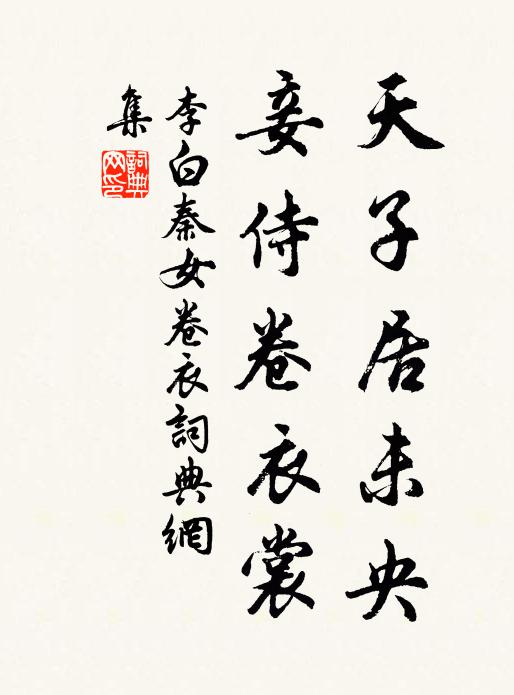 天子居未央
妾侍卷衣裳
李白秦女卷衣詞典網
集
詞典網印